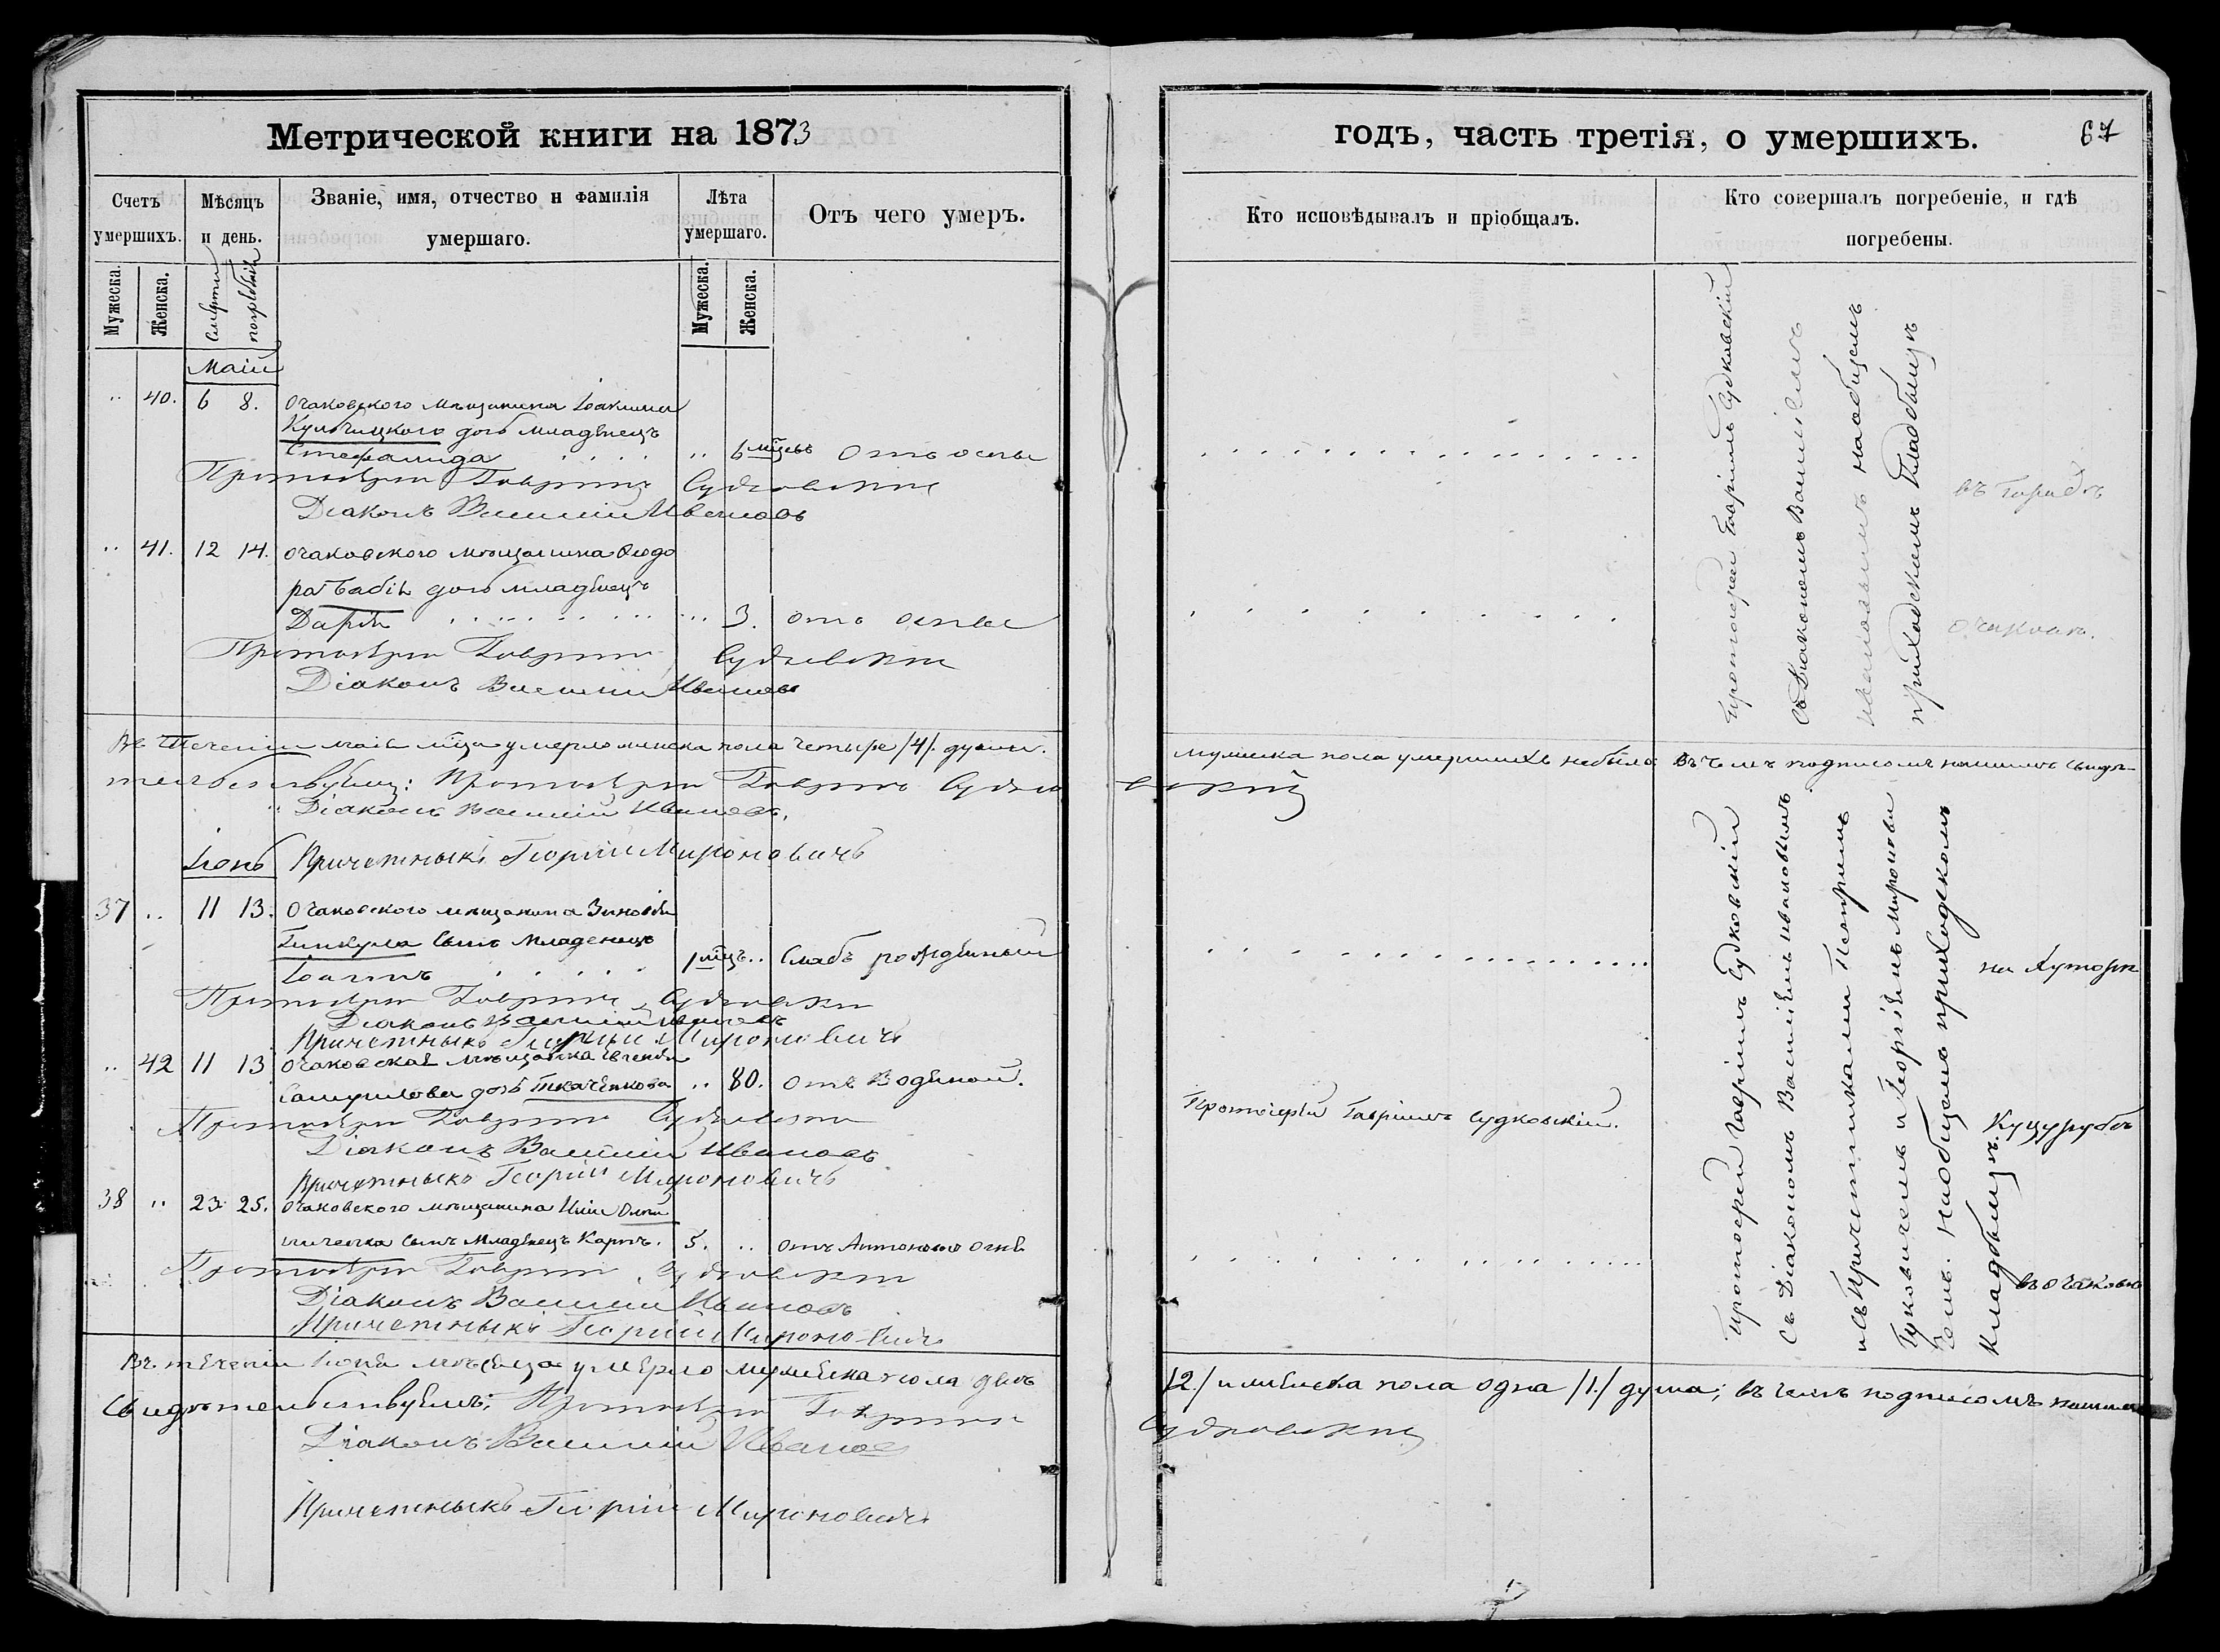 Метрической книги на 1873
Счетъ умершихъ.
Мѣсяцъ и день.
Званіе, имя, отчество и фамилія умершаго.
Лѣта умершаго.
Отъ чего умеръ.
Мужеска.
Женска.
смерти
погребенія
Мужеска.
Женска.
Маій
" 40. 6 8. Очаковского мѣщанина Іоакима
Кульчицкого дочь младенецъ
Стефанида " 6 мцевъ Отъ оспы
Протоіерей Гавріилъ Судковскій
Діаконъ Василій Ивановъ
" 41. 12 14. Очаковского мѣщанина Ѳеодо
ра Бабія дочь младенецъ
Дарія " 3. отъ оспы
Протоіерей Гавріилъ Судковскій
Діаконъ Василій Ивановъ
Въ теченіи маія мца умерло женска пола четыре /4/ души.
тельствуемъ: Протоіерей Гавріилъ Судков
Діаконъ Василій Ивановъ.
Іюнь Причетныкъ Георгій Мироновичъ
37 " 11 13. Очаковского мѣщанина Зиновія
Гинкула сынъ младенецъ
Іоаннъ 1 мцъ. " Слабъ рожденный
Протоіерей Гавріилъ Судковскій
Діаконъ Василій Ивановъ
Причетныкъ Георгій Мироновичъ
" 42 11 13 Очаковская мѣщанка Евгенія
Самуилова дочь Ткаченкова " 80. отъ Водяной.
Протоіерей Гавріилъ Судковскій
Діаконъ Василій Ивановъ
Причетныкъ Георгій Мироновичъ
38 " 23. 25. Очаковского мѣщанина
сынъ младенецъ Карпъ. 5. " отъ Антонова огня
Протоіерей Гавріилъ Судковскій
Діаконъ Василій Ивановъ
Причетныкъ Георгій Мироновичъ
Въ теченіи Іюня мѣсяца умерло мужеска пола двѣ
свидѣтельствуемъ: Протоіерей Гавріилъ
Діаконъ Василій Ивановъ
Причетныкъ Георгій Мироновичъ
годъ, часть третія, о умершихъ. 67
Кто исповѣдывалъ и пріобщалъ.
Кто совершалъ погребеніе, и гдѣ погребены.
Протоіерей Гавріилъ Судковскій
съ Діакономъ Василіемъ
Ивановымъ на общемъ
приходскомъ кладбищѣ
въ городѣ
Очаковѣ.
мужеска пола умершихъ небыло въ чемъ подписомъ нашимъ свидѣ-
вскій
Протоіерей Гавріилъ Судковскій
съ Діакономъ Василіемъ Ивановымъ
и съ Причетниками Петромъ
и Георгіемъ Миронови
чемъ. на общемъ приходскомъ
кладбищѣ.
на Хуторѣ
Протоіерей Гавріилъ Судковскій.
Куцурубѣ
въ Очаковѣ
/2/ и женска пола одна /1/ душа; въ чемъ подписомъ нашимъ
Судковскій